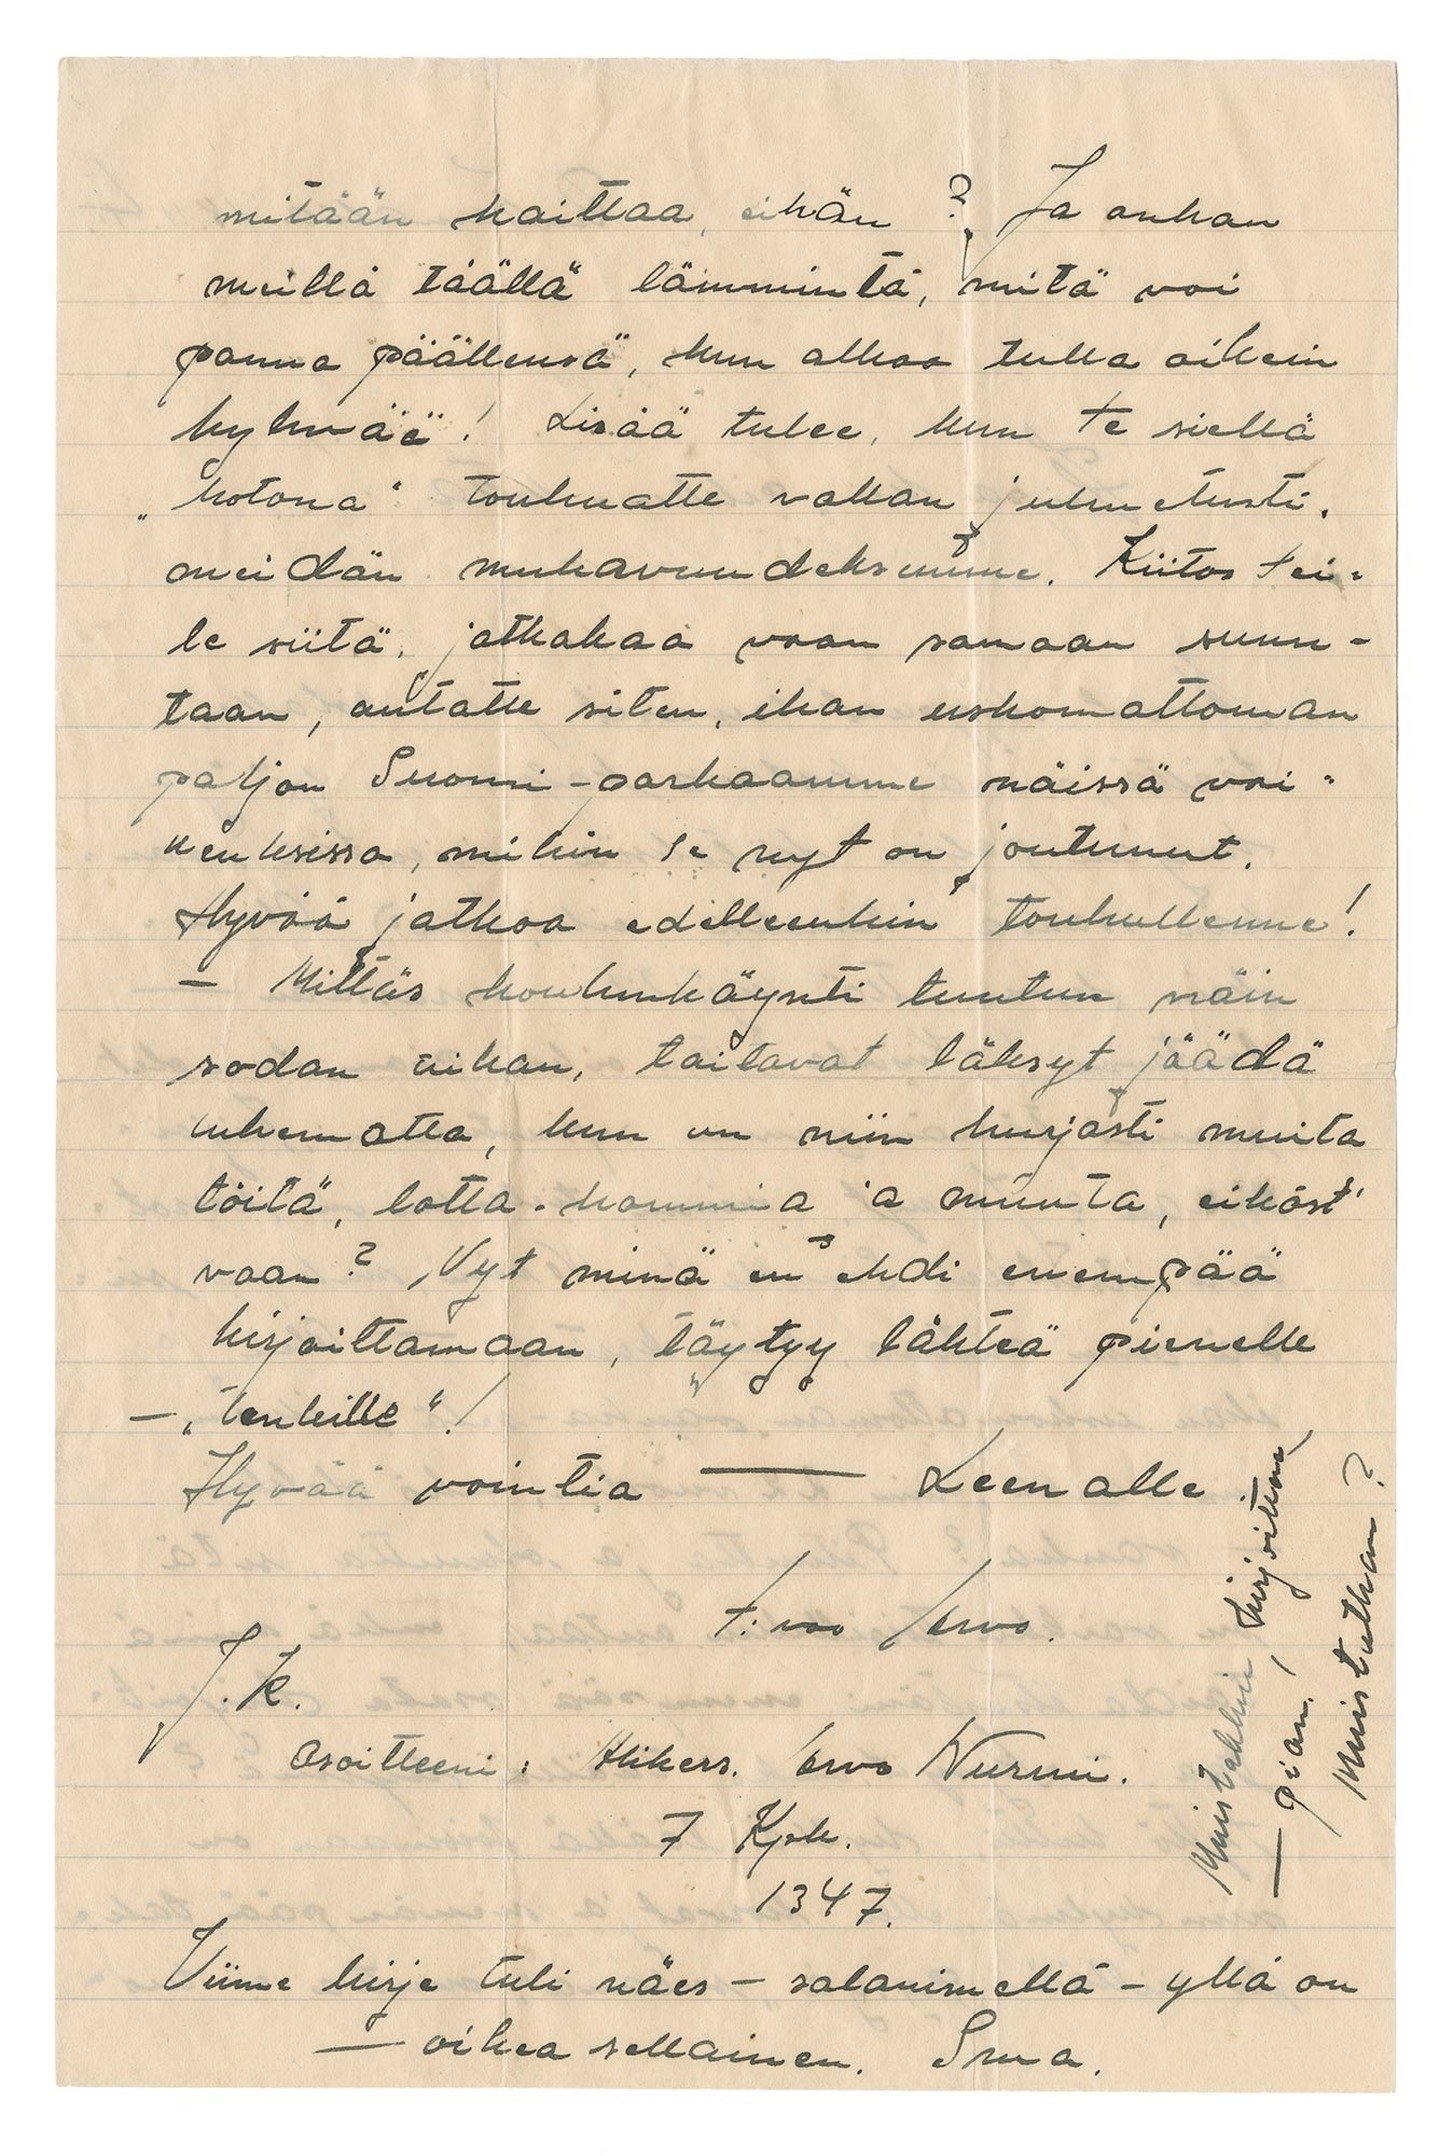 mitään haittaa, eihän? Ja onhan
meillä täällä lämmintä, mitä voi
panna päällensä, kun alkaa tulla oikein
kylmää! Lisää tulee, kun te siellä
„kotona“ touhuatte vallan julmetusti,
meidän mukavuudeksemme. Kiitos tei-
le siitä, jatkakaa vaan samaan suun-
taan, autatte siten, ihan uskomattoman
paljon Suomi-parkaamme näissä voi-
mihin se nyt on joutunut.
Hyvää jatkoa edelleenkin touhullenne!
— Miltäs koulunkäynti tuntuu näin
sodan aikan, taitavat läksyt jäädä
lukematta, kun on niin hurjasti muita
töitä, lotta-hommia ja muuta, eiköst'
vaan? Nyt minä en ehdi enempää
kirjoittamaan, täytyy lähteä pienelle
— „lenkille“!
Hyvää vointia — Leenalle
t:voo Arvo.
J.K.
Osoitteeni: Alikers. Arvo Nurmi.
7 Kpk.
1347.
Viime kirje tuli näes – salanimellä – yllä on
— oikea sellainen. Sma.
Muistakkin kirjoittaa,
— pian!
Muistathan?